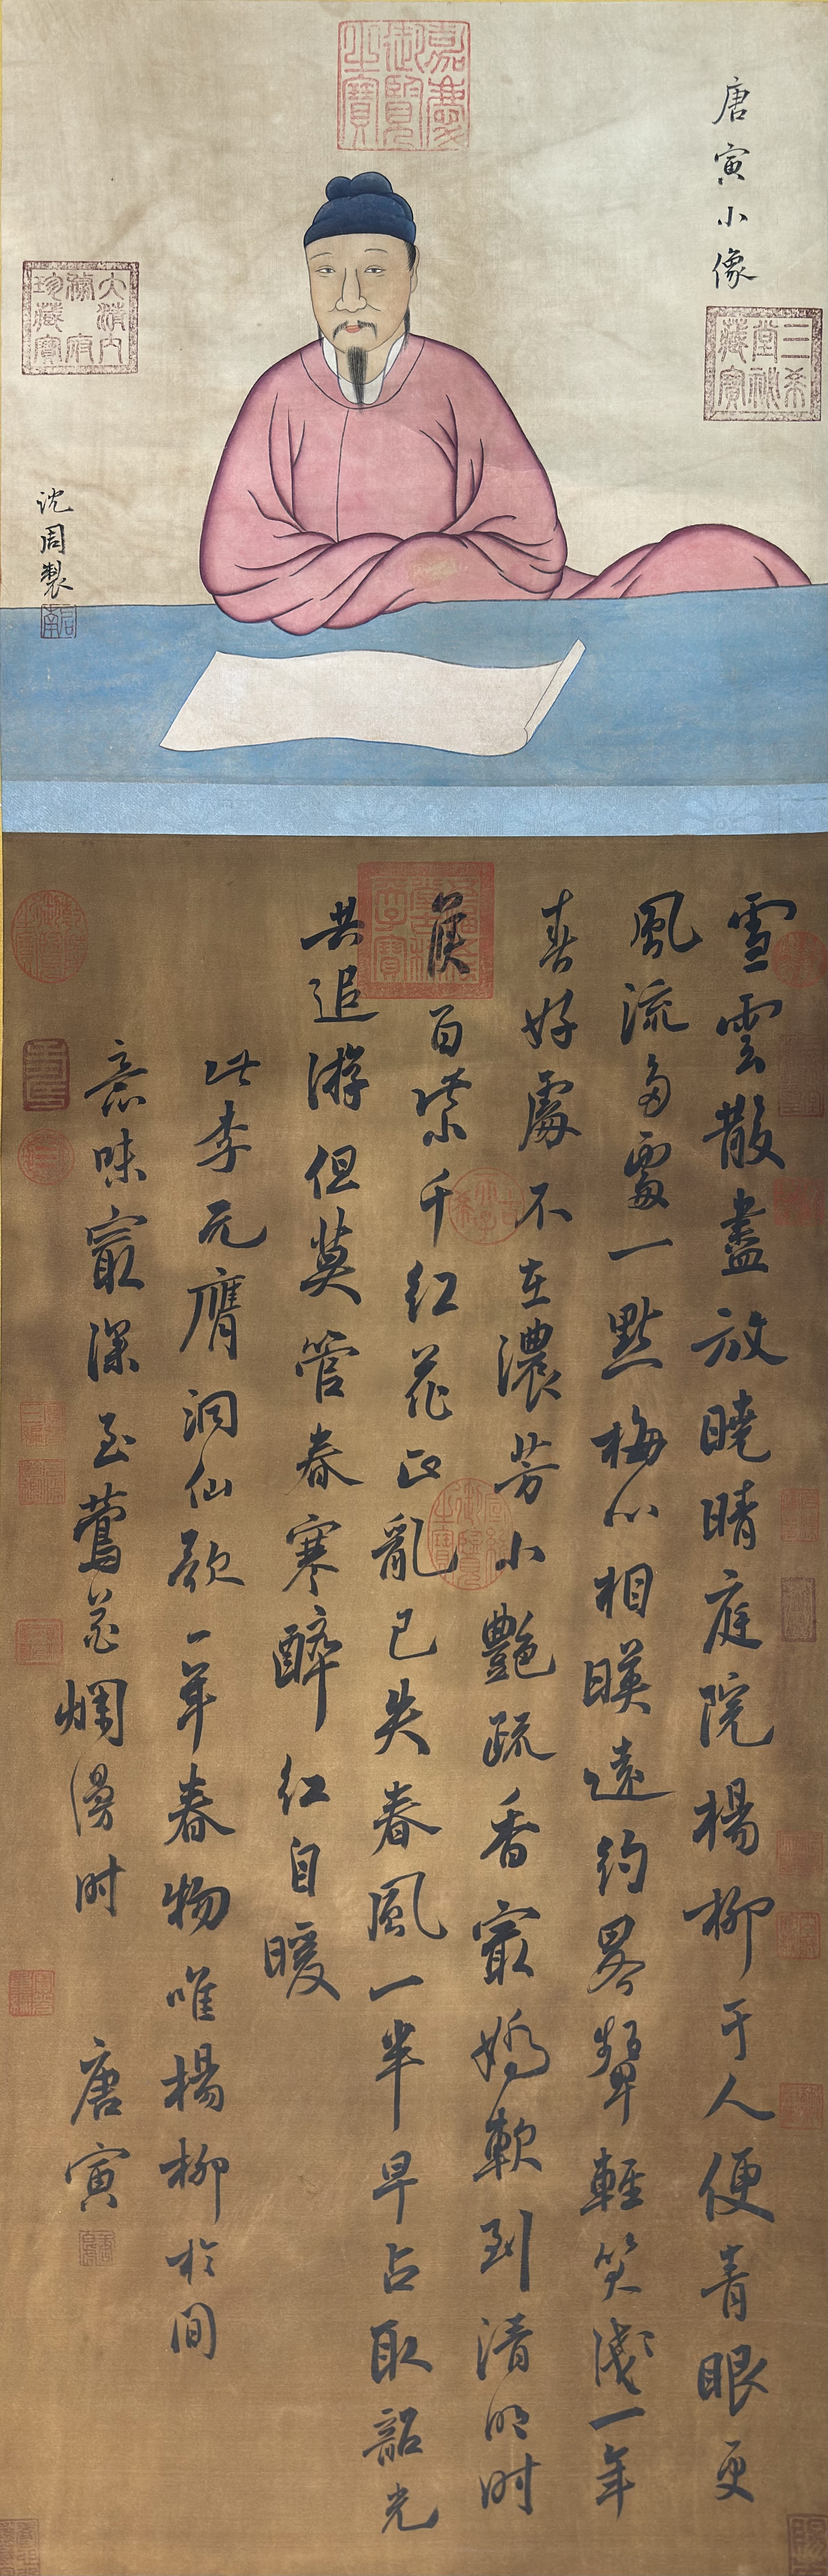 嘉慶御覽之寶
唐寅小像
三希堂秘藏寶
沈周製
啟南
雪雲散盡放曉晴庭院楊柳于人便青眼更
風流多處一點梅心相暎遠約畧顰輕笑淺一年
春好處不在濃芳小艷疏香㝡嬌軟到清明時
候百紫千紅花正亂已失春風一半早占取韶光
共追游但莫管春寒醉紅自暖
此李元膺洞仙歌一年春物唯楊柳於間
意味㝡深至鶯花爛漫時
唐寅